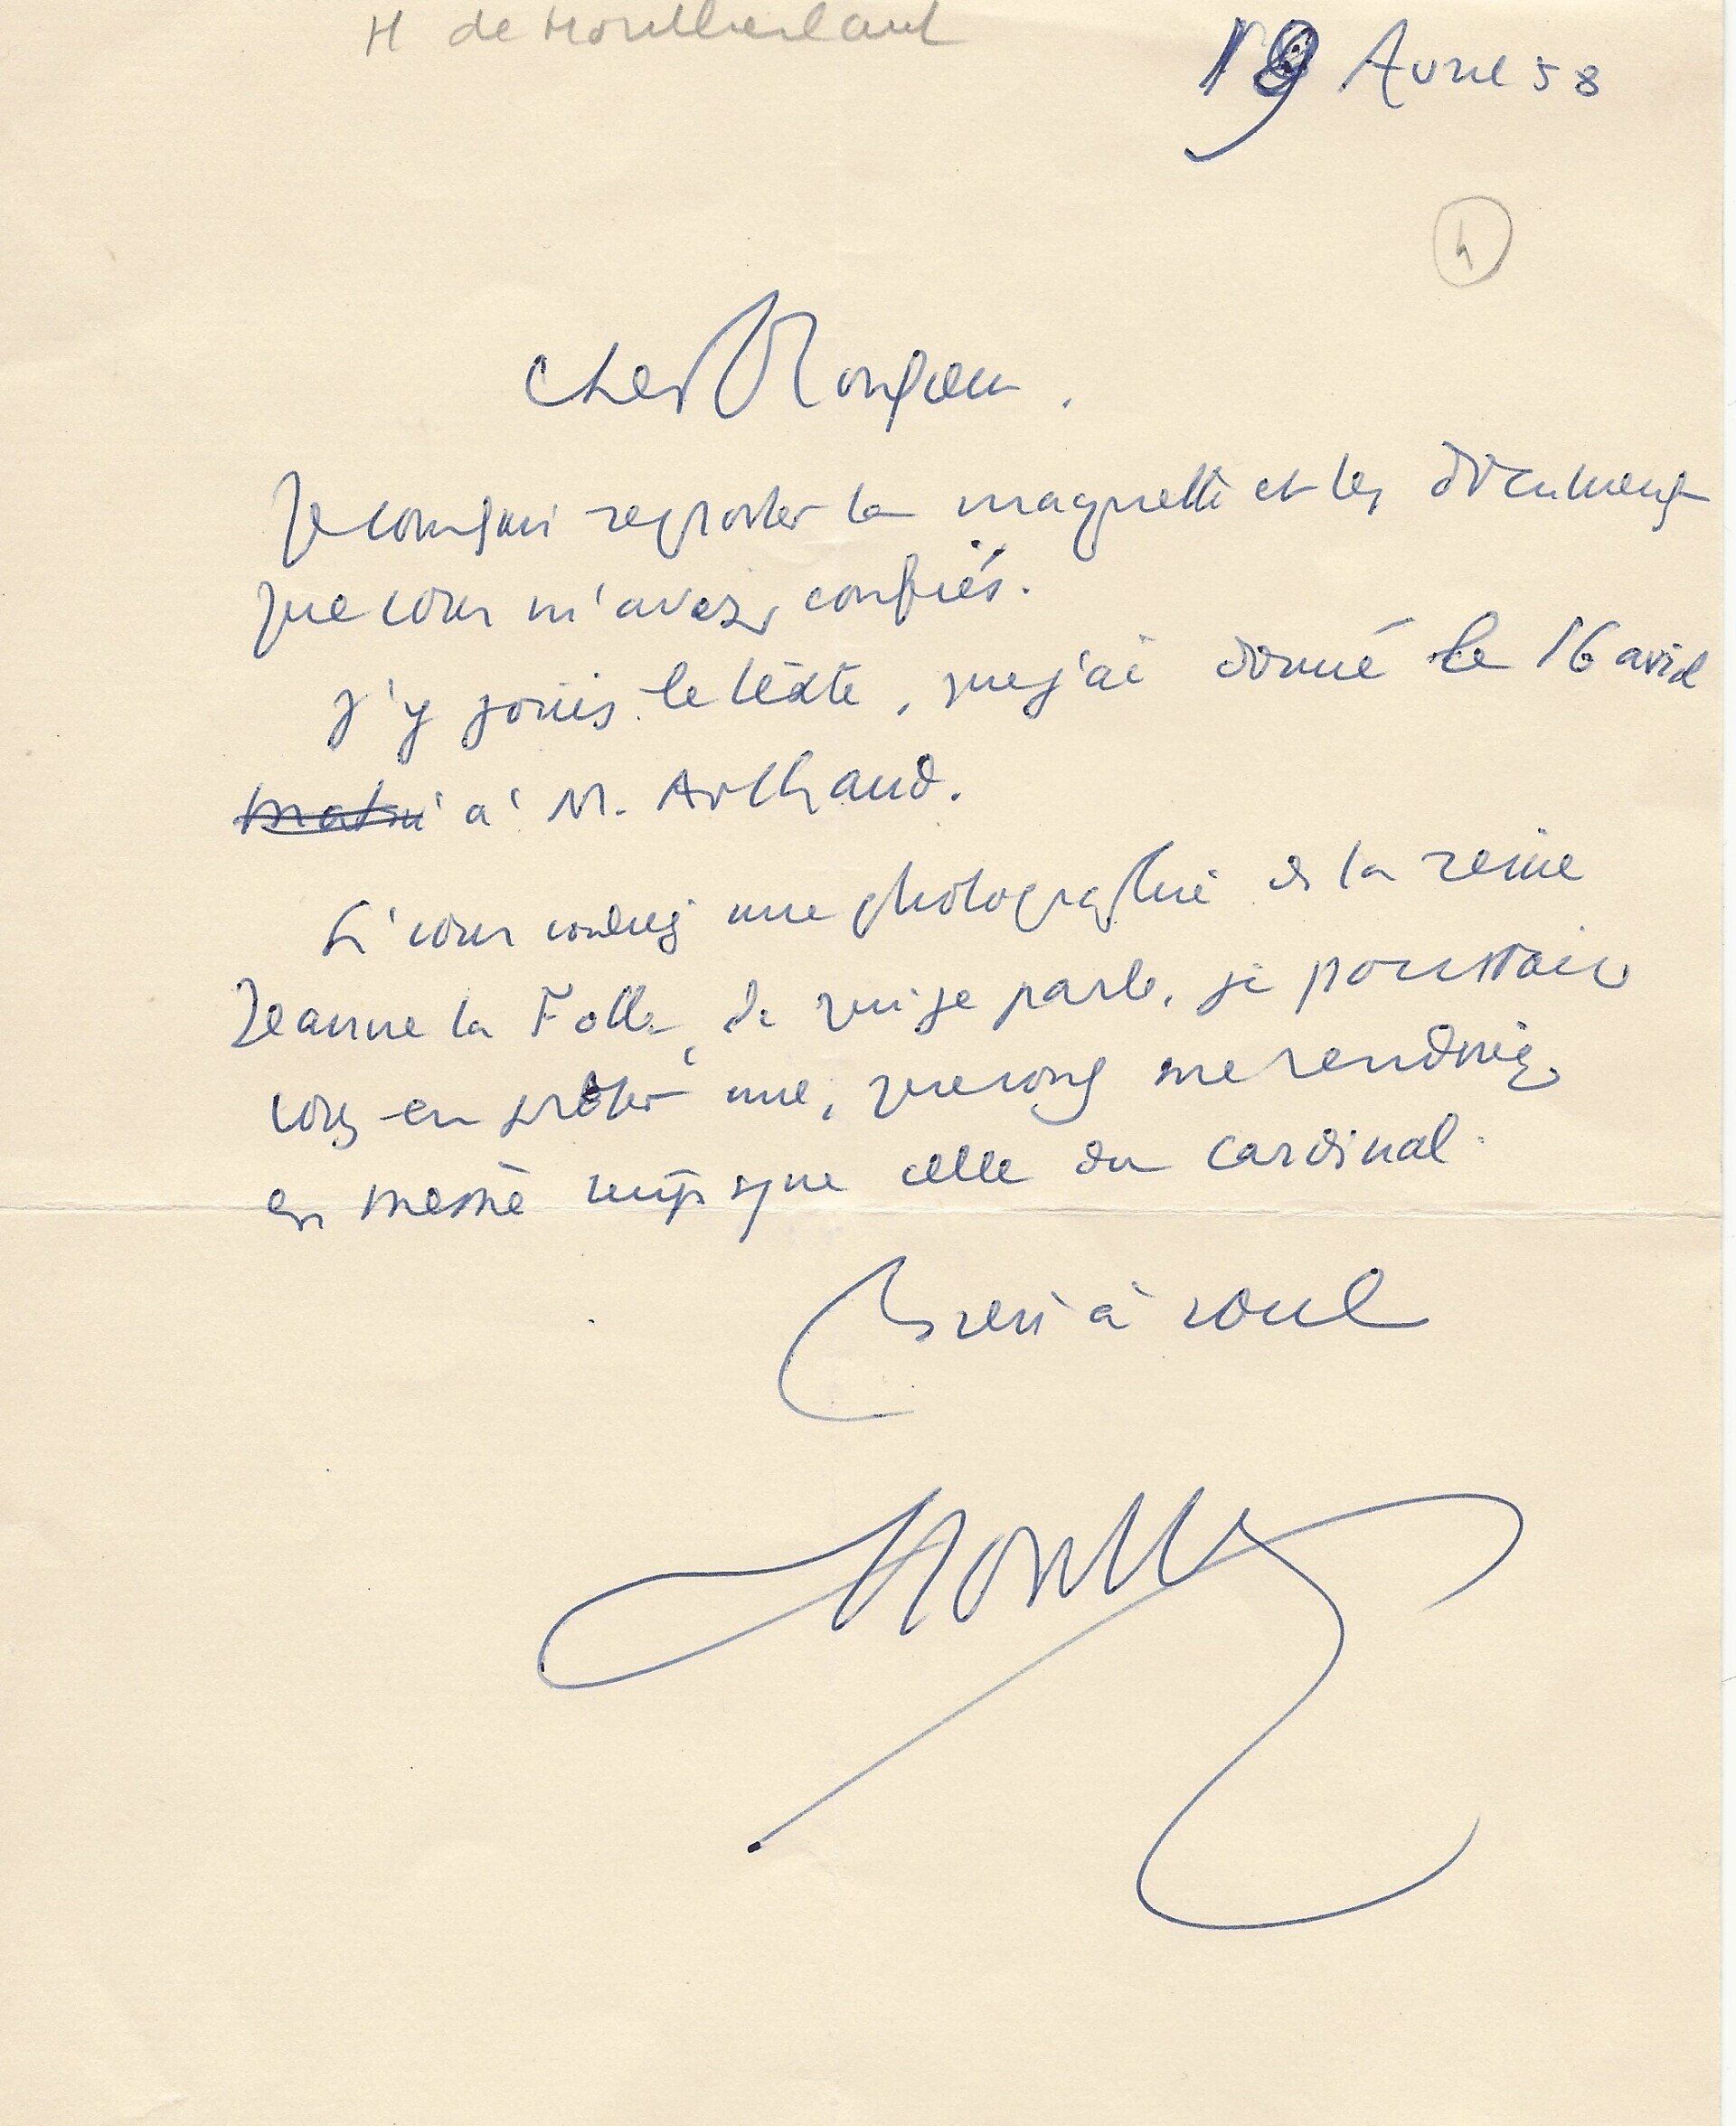 H de Montherlant
19 Avril 58
4
Cher Monsieur,
Je vous fais reporter la maquette et les documents
que vous m'avez confiés.
J'y joins le texte, que j'ai donné le 16 avril
matin à M. Arthaud.
Si vous vouliez une photographie de la reine
Jeanne la Folle, de qui je parle, je pourrais
vous en prêter une, que vous me rendriez
en même temps que celle du cardinal.
Bien à vous
Month